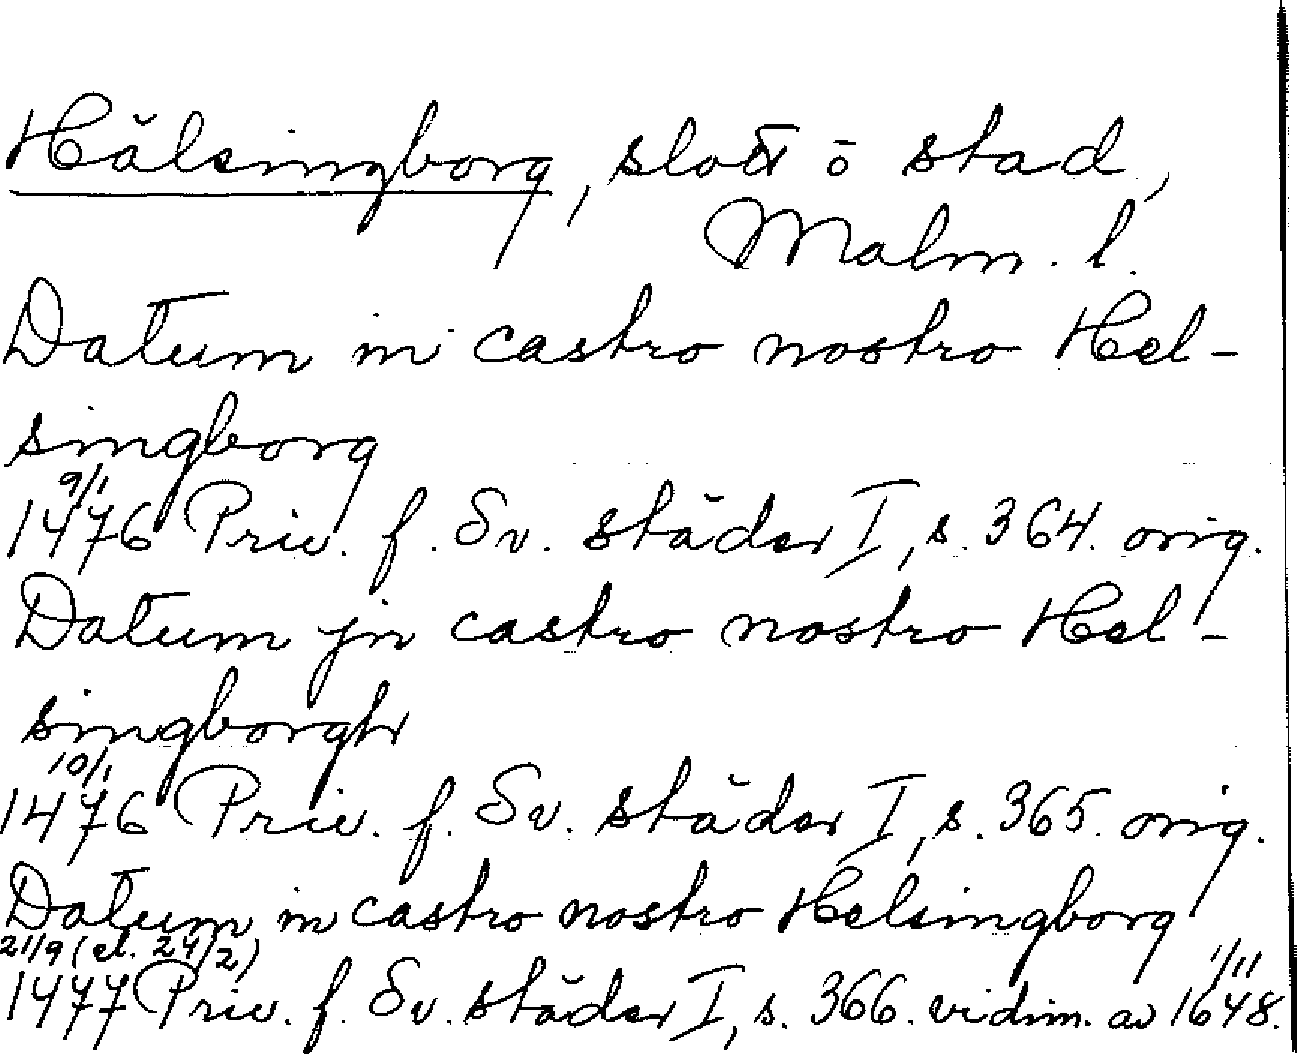 Hälsingborg, slott o stad,
Malm. l.
Datum in castro nostro Hel-
singborg
9/1
1476 Priv. f. Sv. städer I, s. 364. orig.
Datum jn castro nostro Hel-
singborgh
10/1
1476 Priv. f. Sv. städer I, s. 365. orig.
Datum in castro nostro Helsingborg
21/9 (el. 24/2) 1/11
1477 Priv. f. Sv. städer I, s. 366. vidim. av 1648.